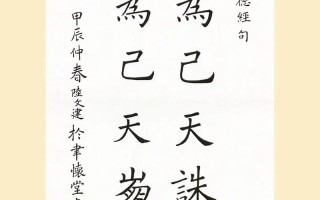 經句
為己天誅
為己天
甲辰仲春陸文建於聿懷堂